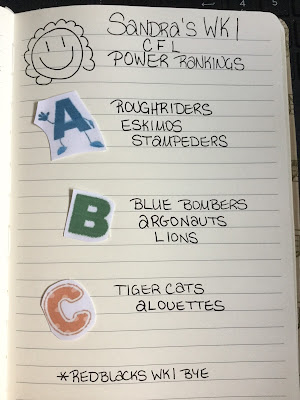 SANDRA'S WK 1
CFL
POWER RANKINGS
A
ROUGHRIDERS
ESKIMOS
STAMPEDERS
B
BLUE BOMBERS
ARGONAUTS
LIONS
C
TIGER CATS
ALOUETTES
*REDBLACKS WK 1 BYE